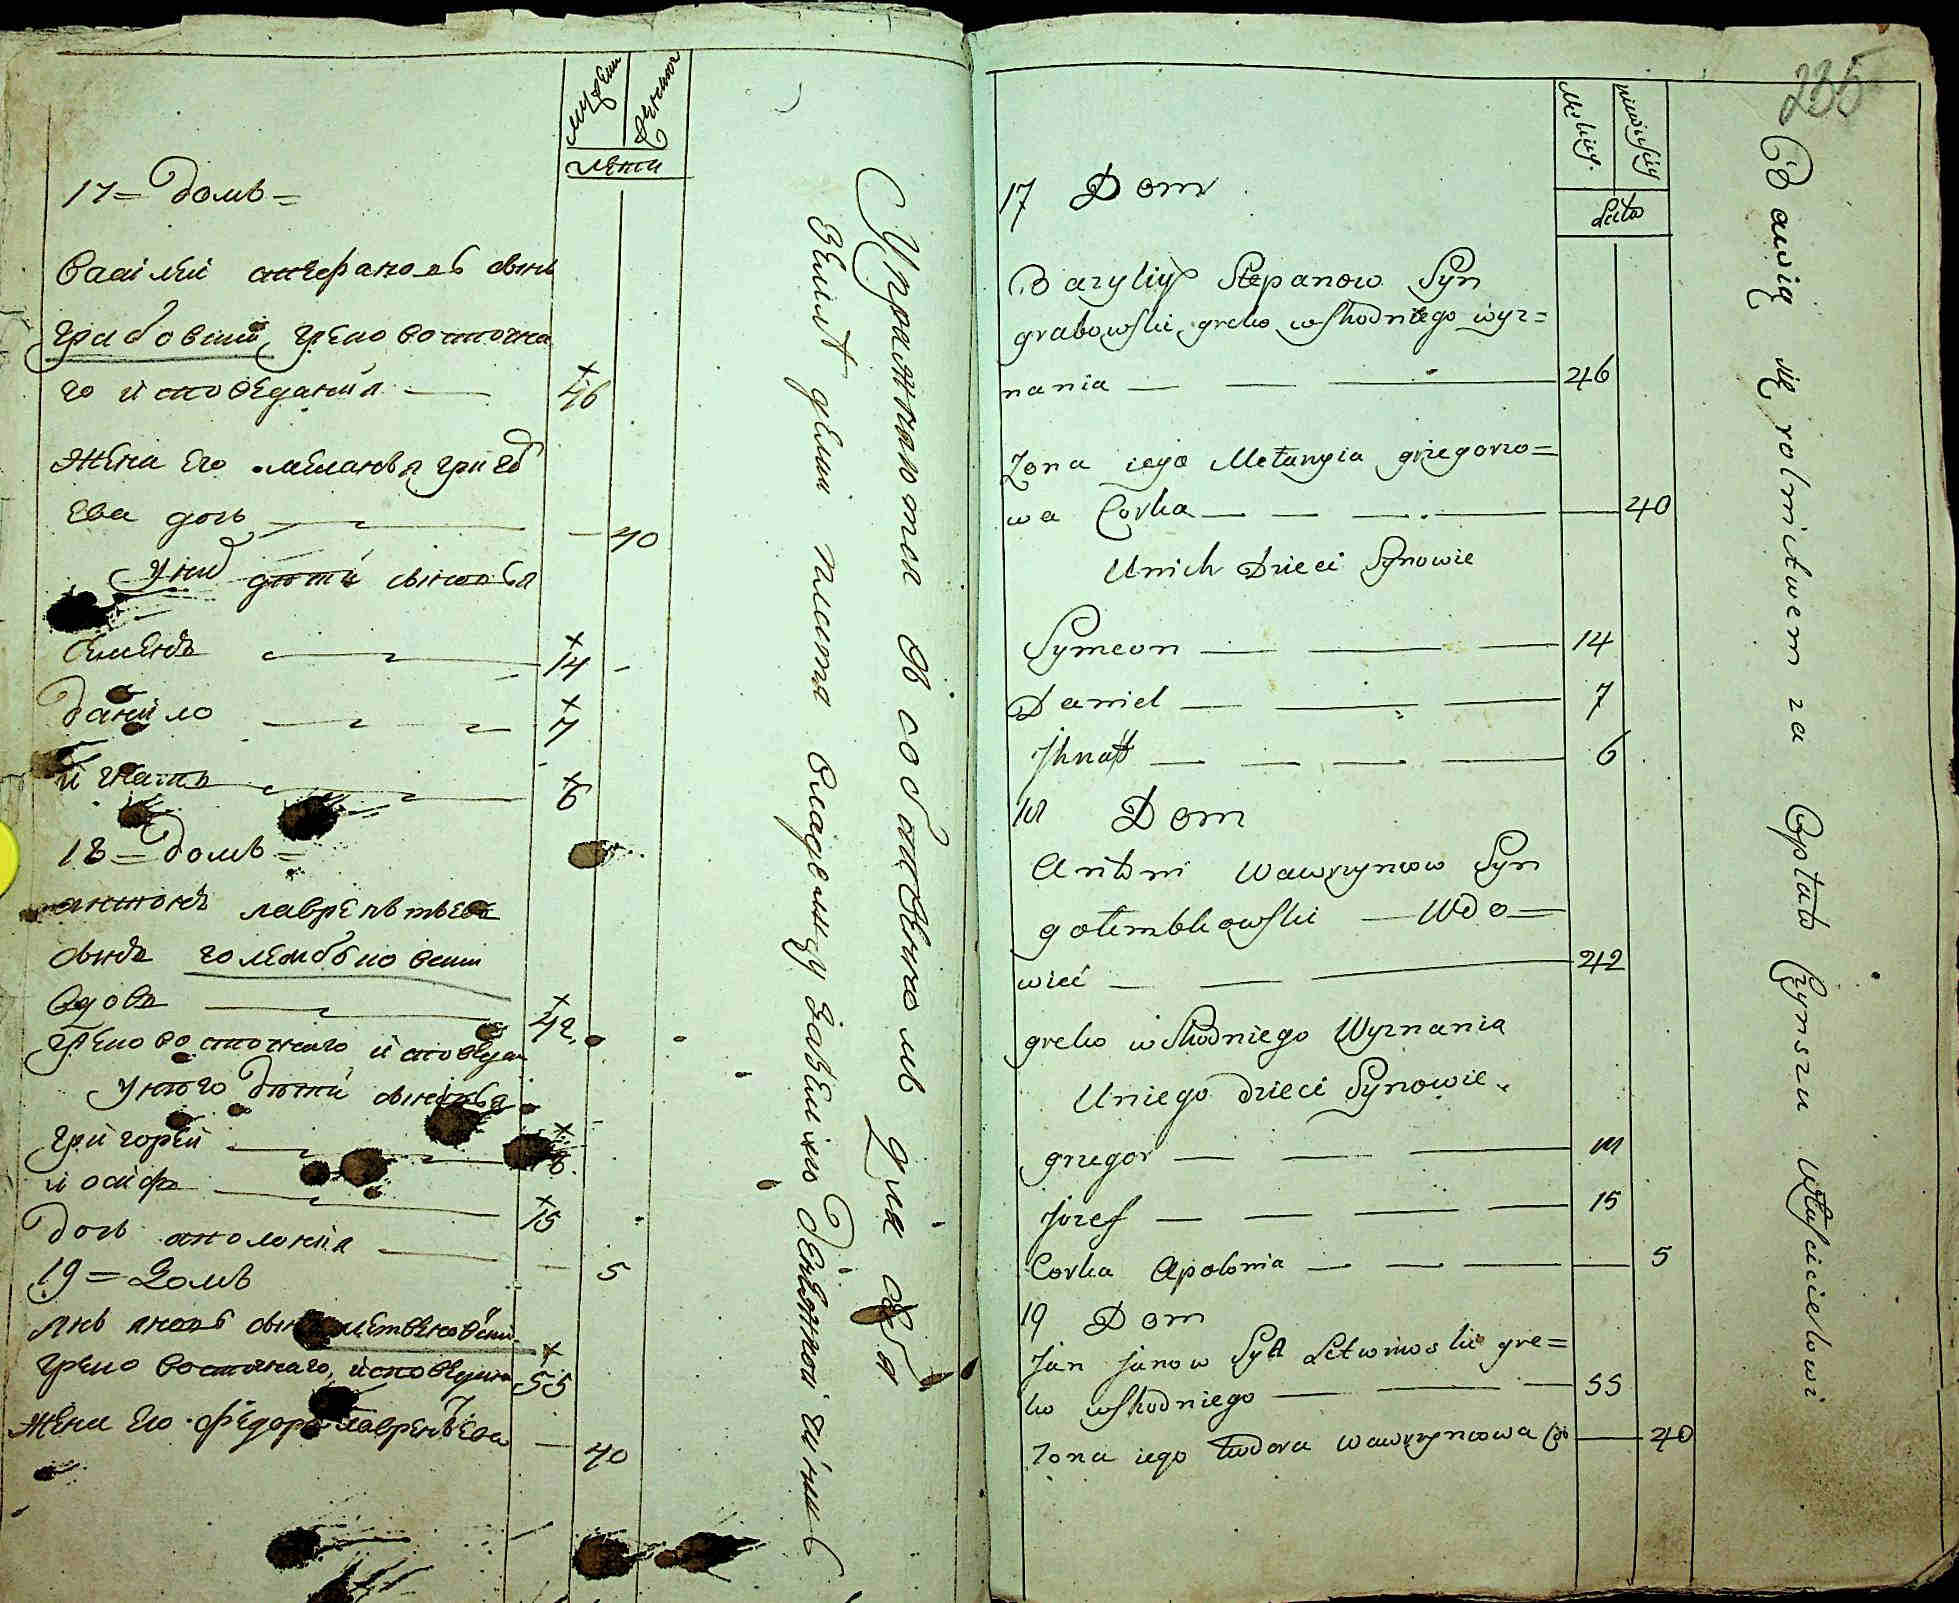 мужеска
женска
лета
17 = Домъ =
Василий Стефановъ сынъ
Грабовский, греко восточна
го исповедания
46
Жена его Меланья Григо
ева дочь
40
У них дети сыновья
Сименъ
14
Данило
7
Игнатъ
6
18 = Домъ =
Антонъ Лаврентьевъ
сынъ Голембковски
вдовъ
42
греко восточнаго исповедан
У него дети сыновья
Григорей
18
Иосифъ
15
Дочь Аполония
5
19 = Домъ
Янъ Яновъ сынъ
греко восточнаго исповедан
55
Жена его Федора Лавреньева
40
Упражняются въ собственномъ для себя
235
Męskiey
niewieściey
Lata
17 Dom
Bazyliy Stepanow Syn
grabowski greko wshodniego wyz=
nania
46
Zona iego Mełanyia griegorzo=
wa Corka
40
Unich Dzieci Synowie
Symeon
14
Daniel
7
Jhnatt
6
18 Dom
Antoni Wawrzyncow Syn
gołembkowski Wdo=
wiec
42
greko wshodniego Wyznania
Uniego dzieci Synowie
grzegor
18
Jozef
15
Corka Apolonia
5
19 Dom
Jan Janow Syn Letwinowski gre=
ko wshodniego
55
Zona iego Teodora Wawrzyncowa
40
Bawią się rolnictwem za Opłato Czynszu Właścicielowi